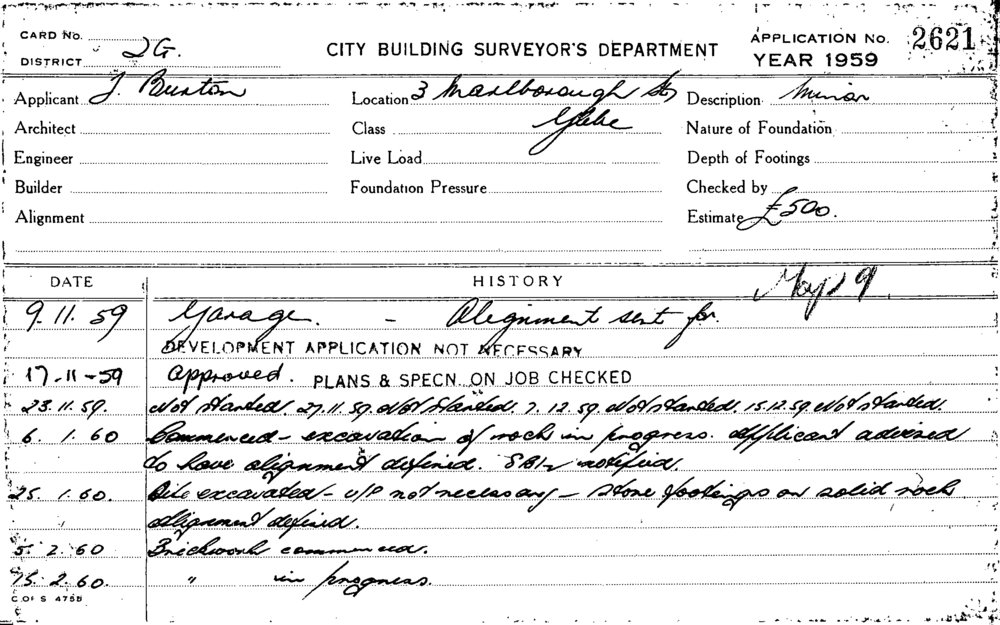 CARD No.
DISTRICT 2G.
CITY BUILDING SURVEYOR'S DEPARTMENT
APPLICATION No. 2621
YEAR 1959
Applicant J. Burton Location 3 Marlborough St, Description Minor
Architect Class Glebe Nature of Foundation
Engineer Live Load Depth of Footings
Builder Foundation Pressure Checked by
Alignment Estimate £500.
DATE HISTORY Map 9
9.11.59 Garage. - Alignment sent for.
DEVELOPMENT APPLICATION NOT NECESSARY
17-11-59 Approved. PLANS & SPECN. ON JOB CHECKED
23.11.59. Not started. 27.11.59. Not started. 7.12.59. Not started. 15.12.59. Not started.
6.1.60 Commenced - excavation of rock in progress. Applicant advised
to have alignment defined. notified.
25.1.60. Site excavated - U/P not necessary - stone footings on solid rock
alignment defined.
5.2.60 Brickwork commenced.
15.2.60. " in progress.
C OF S 475B